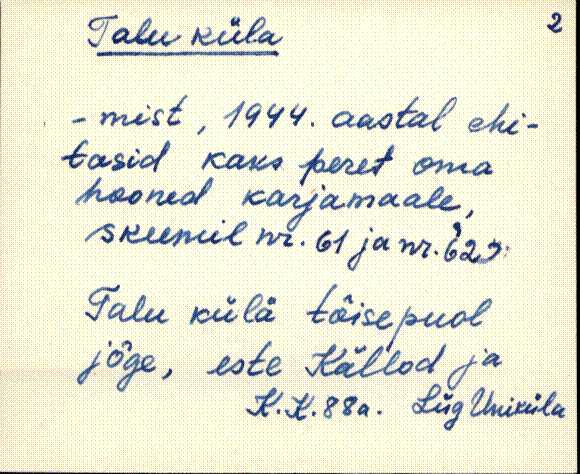 2
Talu küla
- mist, 1944. aastal ehi-
tasid kaks peret oma
hooned karjamaale,
skeemil nr. 61 ja nr. 62.
Talu külä tõisepuol
jõge, este Källod ja
K.K.88a. Lüg Uniküla